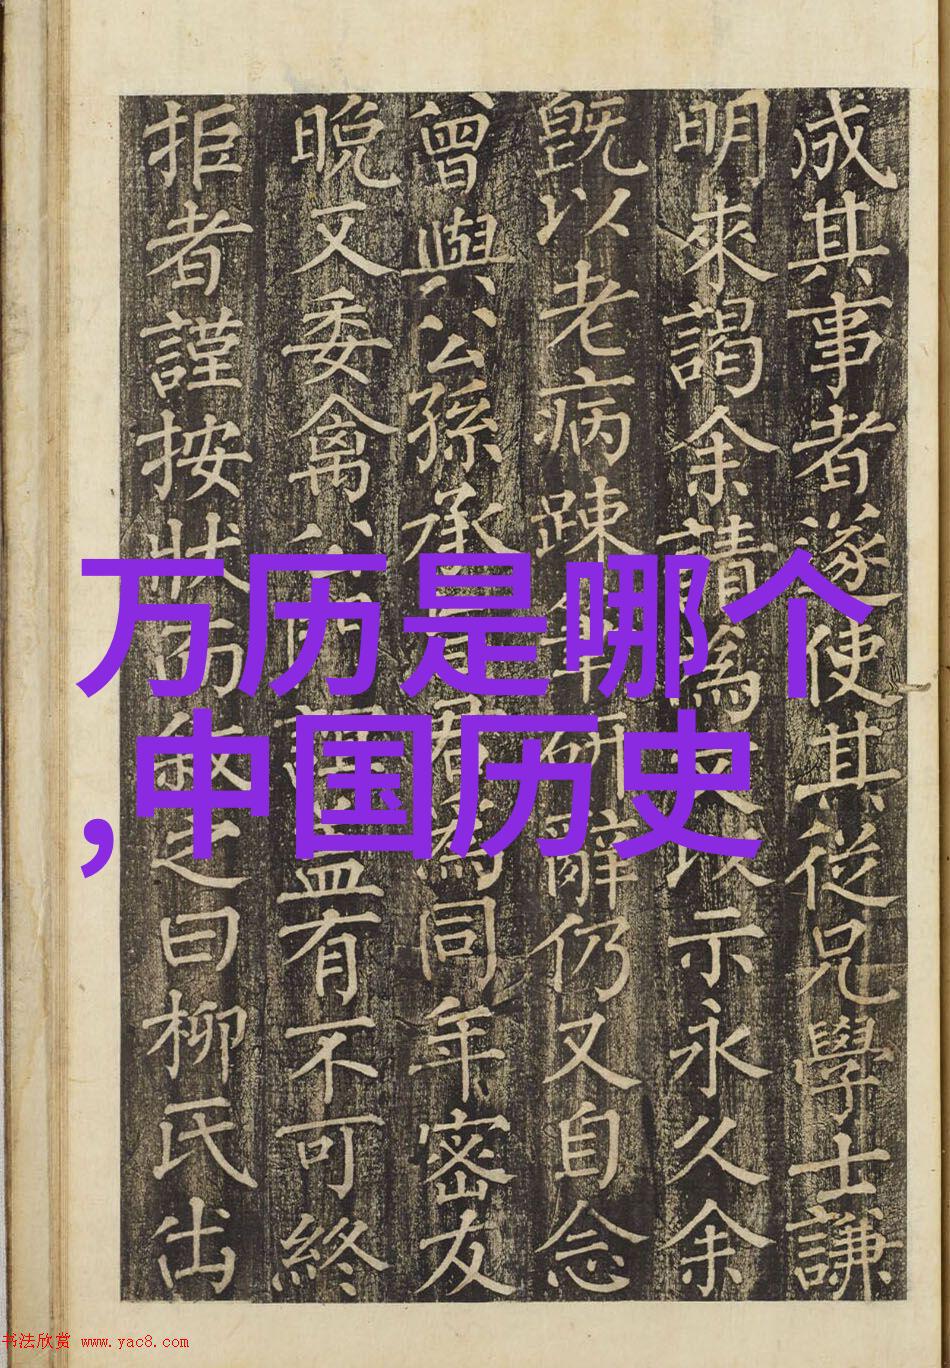 成其事者遂使其從兄學士謙
明來謁余請為文以示永久余
既以老病踈研辭仍又自念
曾與公孫承君為同年密友
晚又委禽誼有不可終
拒者謹按狀而敘之曰柳氏出
万历是哪个
,中国历史
书法欣赏 www.yac8.com